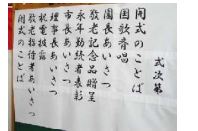 式次第
開式のことば
国歌斉唱
園長あいさつ
敬老記念品贈呈
永年勤続者表彰
市長あいさつ
理事長あいさつ
祝電披露
敬老招待者あいさつ
閉式のことば